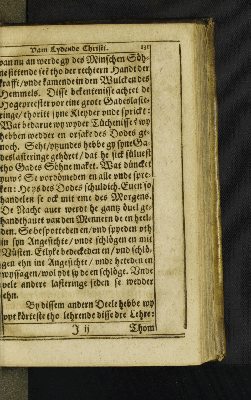 Vam Lydende Christi. 131
van nu an werde gy des Minschen Söh-
ne sittende seh tho der rechtern Handt der
krafft / vnde kamende in den Wulcken des
Hemmels. Disse bekentenisse achtet de
Hogeprester vor eine grote Gadeslaste-
ringe / thoritt syne Kleyder vnde sprickt:
Wat bedarue wy wyder Tüchenisse? wy
hebben wedder en orsake des Dodes ge-
noch. Seht / yzundes hebbe gy syne Ga-
deslasteringe gehöret / dat he sick süluest
tho Gades Söhne maket. Wat düncket
yuw? Se vordömeden en alle vnde spre-
ken: He ys des Dodes schuldich. Euen so
handelen se ock mit eme des Morgens.
De Nacht auer werdt he gantz öuel ge-
handthauet van den Mennern de en heel-
den. Se bespotteden en / vnd spyeden yth
in syn Angesichte / vnde schlögen en mit
Vüsten. Etlyke bedeckeden en / vnd schlö-
gen ehn int Angesichte / vnde heteden en
wyssagen / wol ydt sy de en schlöge. Vnde
vele andere lasteringe seden se wedder
ehn.
By dissem andern Deele hebbe wy
vpt körteste tho lehrende disse dre Lehre:
J ij Thom